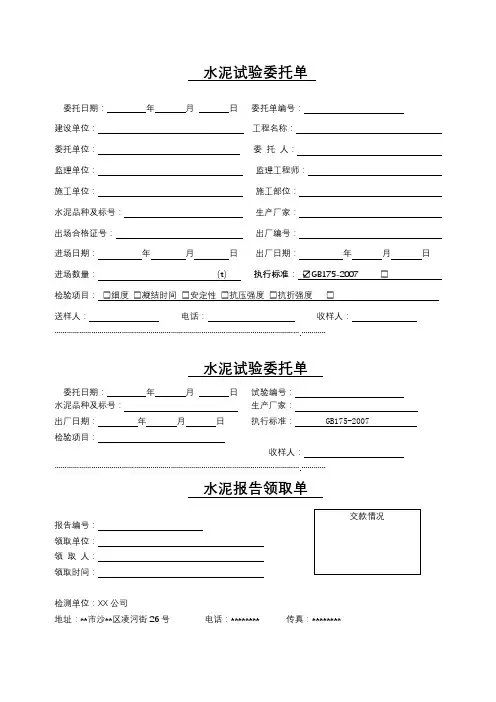 水泥试验委托单
委托日期： 年 月 日 委托单编号：
建设单位： 工程名称：
委托单位： 委 托 人：
监理单位： 监理工程师：
施工单位： 施工部位：
水泥品种及标号： 生产厂家：
出场合格证号： 出厂编号：
进场日期： 年 月 日 出厂日期： 年 月 日
进场数量： (t) 执行标准： ☑GB175-2007 □
检验项目： □细度 □凝结时间 □安定性 □抗压强度 □抗折强度 □
送样人： 电话： 收样人：
水泥试验委托单
委托日期： 年 月 日 试验编号：
水泥品种及标号： 生产厂家：
出厂日期： 年 月 日 执行标准： GB175-2007
检验项目：
收样人：
水泥报告领取单
交款情况
报告编号：
领取单位：
领 取 人：
领取时间：
检测单位：XX 公司
地址：**市沙**区凌河街 26 号 电话：******** 传真：********